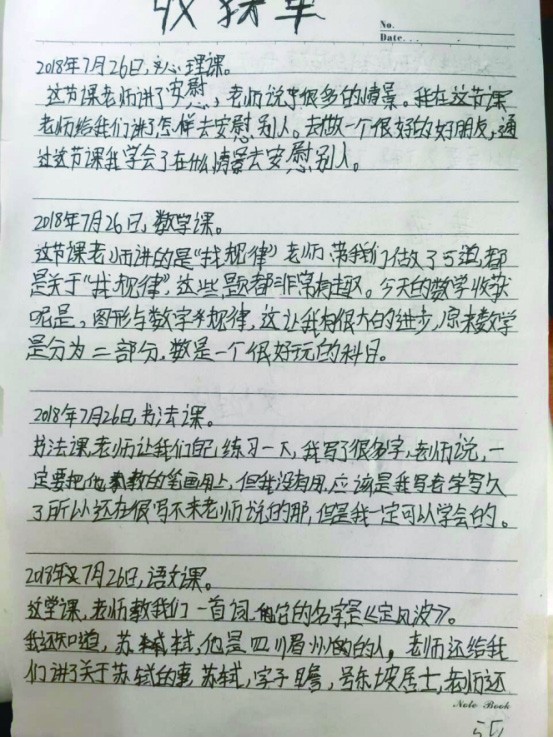 收获单
No.
Date.
2018年7月26日,心理课。
这节课老师讲了安慰,老师说了很多的情景。我在这节课
老师给我们讲了怎样去安慰别人。去做一个很好的好朋友,通
过这节课我学会了在什么情景去安慰别人。
2018年7月26日,数学课。
这节课老师讲的是“找规律”老师带我们做了5道,都
是关于“找规律”这些题都非常有趣。今天的数学收获
呢是,图形与数字找规律,这让我有很大的进步,原来数学
是分为二部分,数是一个很好玩的科目。
2018年7月26日,书法课。
书法课,老师让我们自己练习一下,我写了很多字,老师说,一
定要把他教的笔画用上,但我没有用,应该是我写着字写久
了所以还在很写不来老师说的那,但是我一定可以学会的。
2018年7月26日,语文课。
这堂课,老师教我们一首词,它的名字是《定风波》。
我还知道,苏轼,他是四川眉州的人,老师还给我
们讲了关于苏轼的事,苏轼,字子瞻,号东坡居士,老师还
Note Book